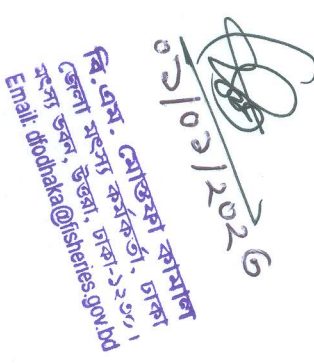 ০১/০১/২০২৬
বি. এম. মোস্তফা কামাল
জেলা মৎস্য কর্মকর্তা, ঢাকা
মৎস্য ভবন, উত্তরা, ঢাকা-১২৩০।
Email: dfodhaka@fisheries.gov.bd